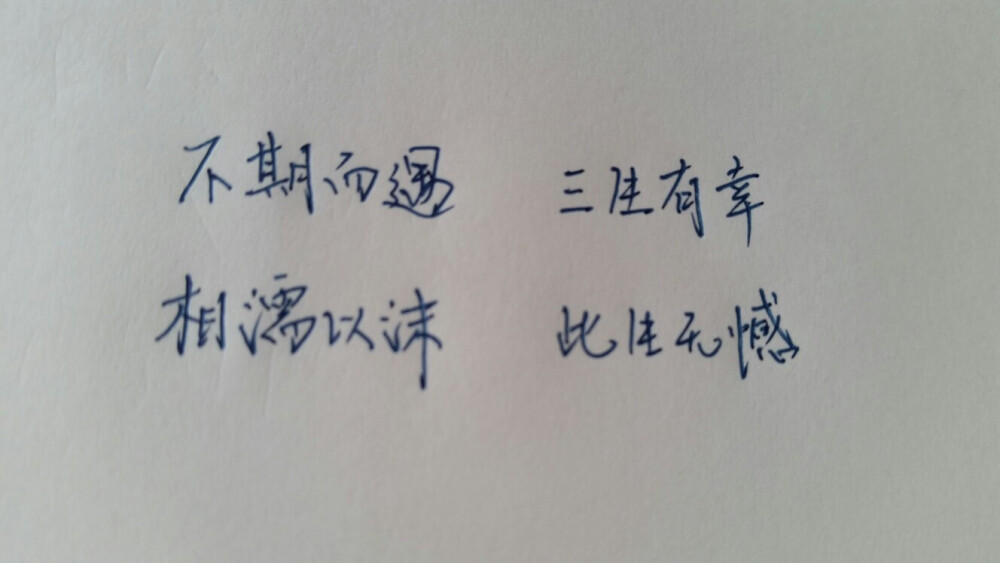 不期而遇 三生有幸
相濡以沫 此生无憾